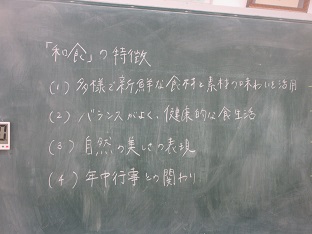 「和食」の特徴
(1) 多様で新鮮な食材と素材の味わいを活用
(2) バランスがよく、健康的な食生活
(3) 自然の美しさの表現
(4) 年中行事との関わり